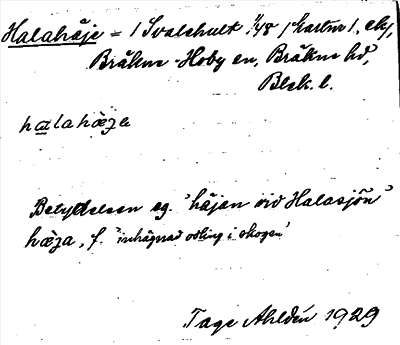 Halahäje = 1 Svalehult 1/48 (kartn), ekj,
Bräkne-Hoby sn, Bräkne hd,
Blek. l.
halahæʒa
Betydelsen eg. 'häjan vid Halasjön'
hæʒa, f. 'inhägnad odling i skogen'
Tage Ahldén 1929